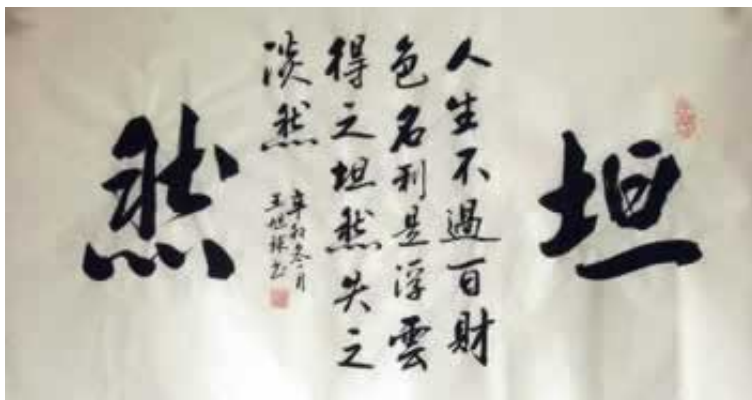 坦
人生不過百財
色名利是浮雲
得之坦然失之
淡然
冬月
王旭
然